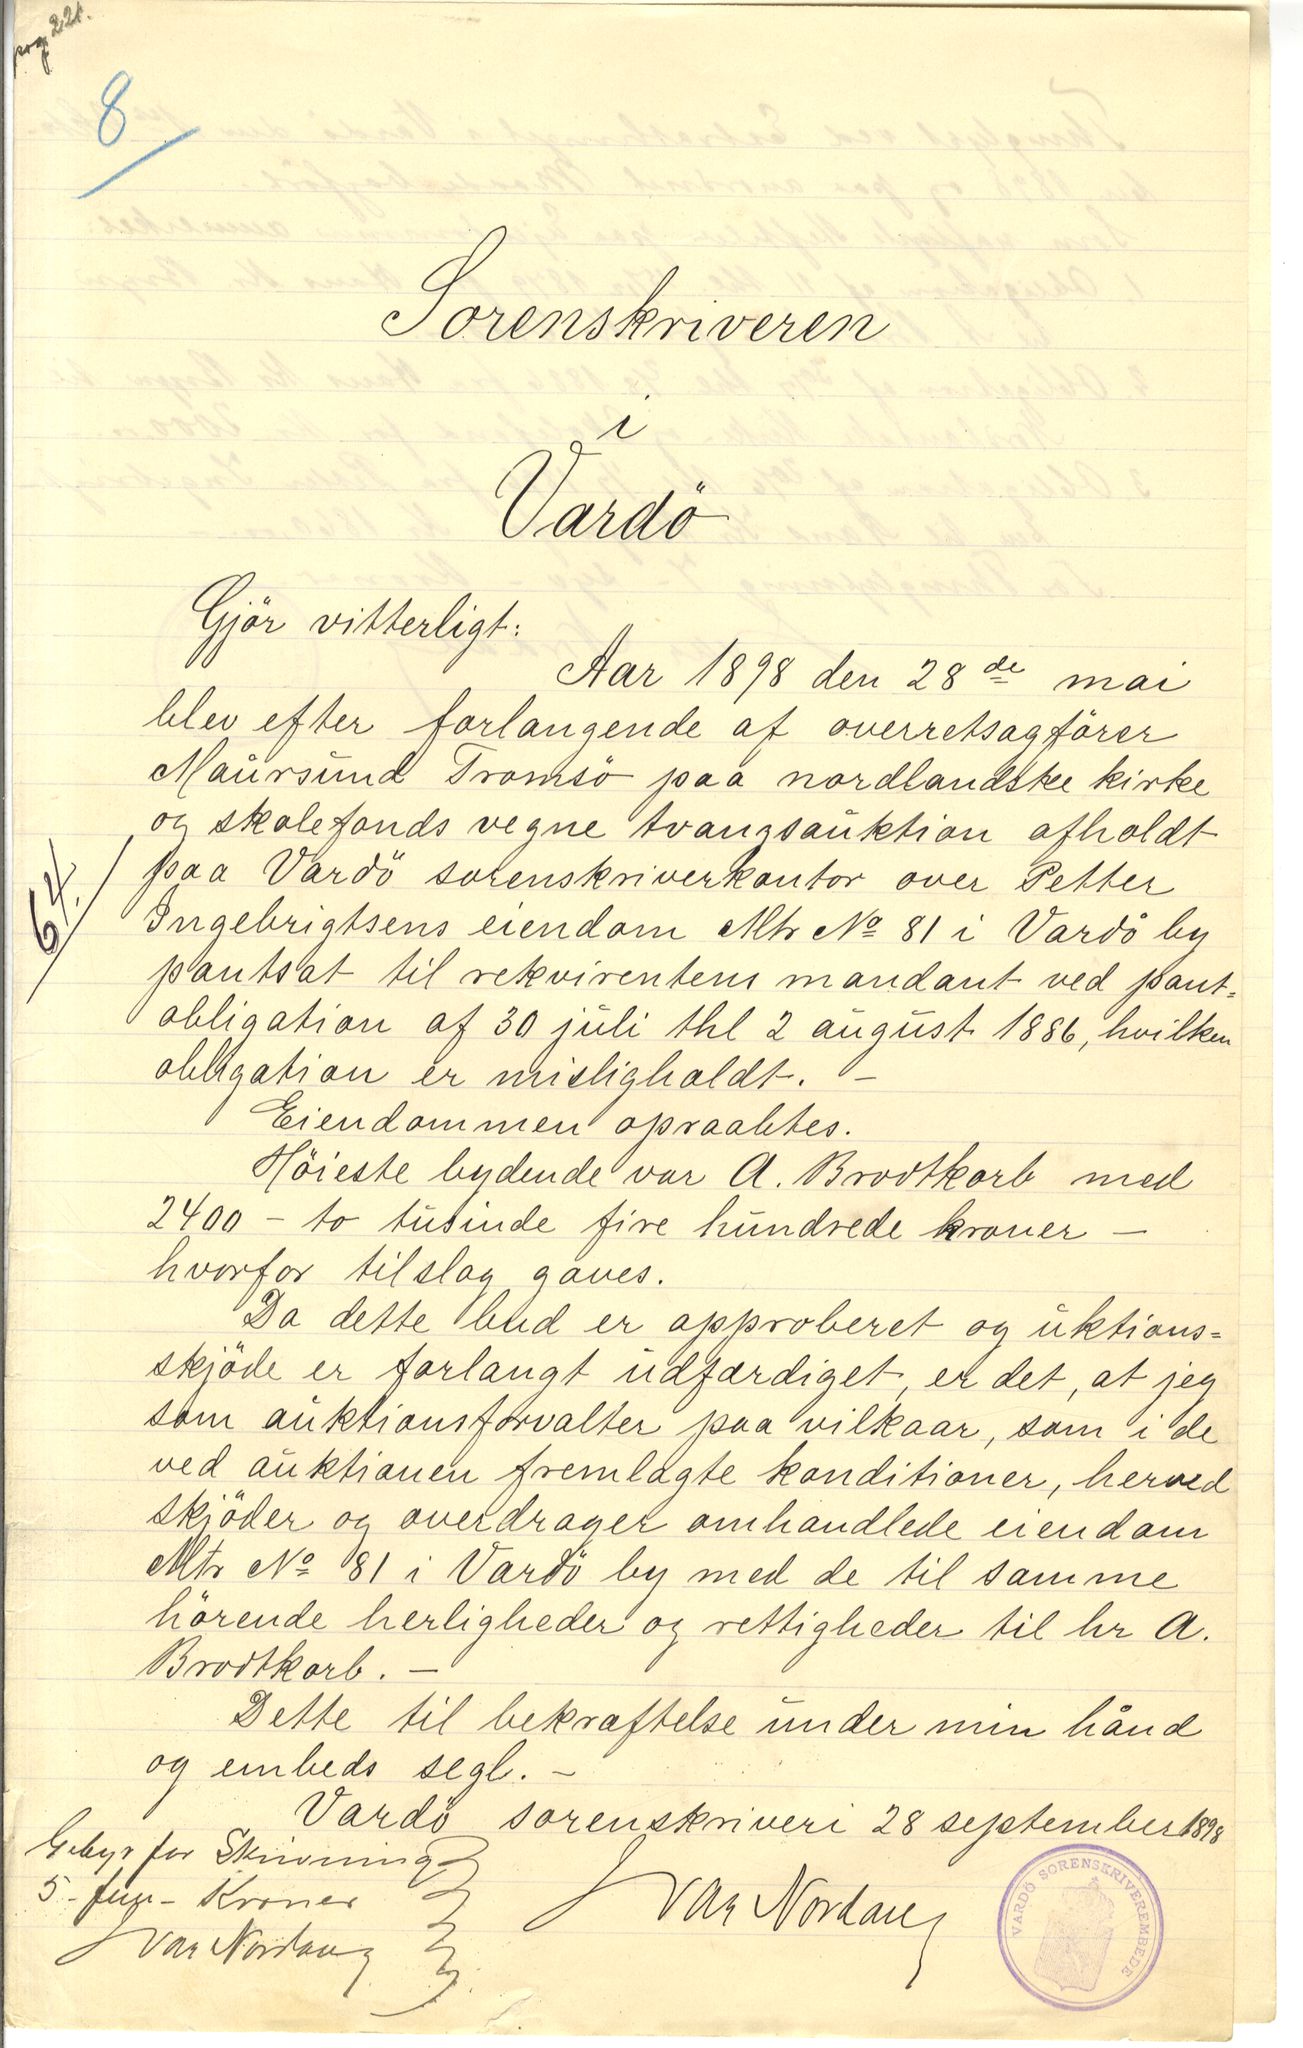 pag 221.
8
Sorenskriveren
i
Vardö
Gjör vitterligt:
Aar 1898 den 28de mai
blev efter forlangende af overretsagförer
Maursund Tromsö paa nordlandske kirke
og skolefonds vegne tvangsauktion afholdt
paa Vardö sorenskriverkontor over Petter
Ingebrigtsens eiendom Mtr No 81 i Vardö by
pantsat til rekvirentens mandant ved pant=
obligation af 30 juli thl 2 august 1886, hvilken
obligation er misligholdt. –
Eiendommen opraabtes.
Höieste bydende var A. Brodtkorb med
2400 – to tusinde fire hundrede kroner –
hvorfor tilslag gaves.
Da dette bud er approberet og uktions=
skjöde er forlangt udfærdiget, er det, at jeg
som auktionsforvalter paa vilkaar, som i de
ved auktionen fremlagte konditioner, herved
skjöder og overdrager omhandlede eiendom
Mtr No 81 i Vardö by med de til samme
hörende herligheder og rettigheder til hr A.
Brodtkorb. –
Dette til bekræftelse under min hånd
og embeds segl. –
Vardö sorenskriveri 28 september 1898
64.
Gebyr for Skrivning
5 – fem – Kroner
Nordang
Nordang
VARDÖ SORENSKRIVEREMBEDE